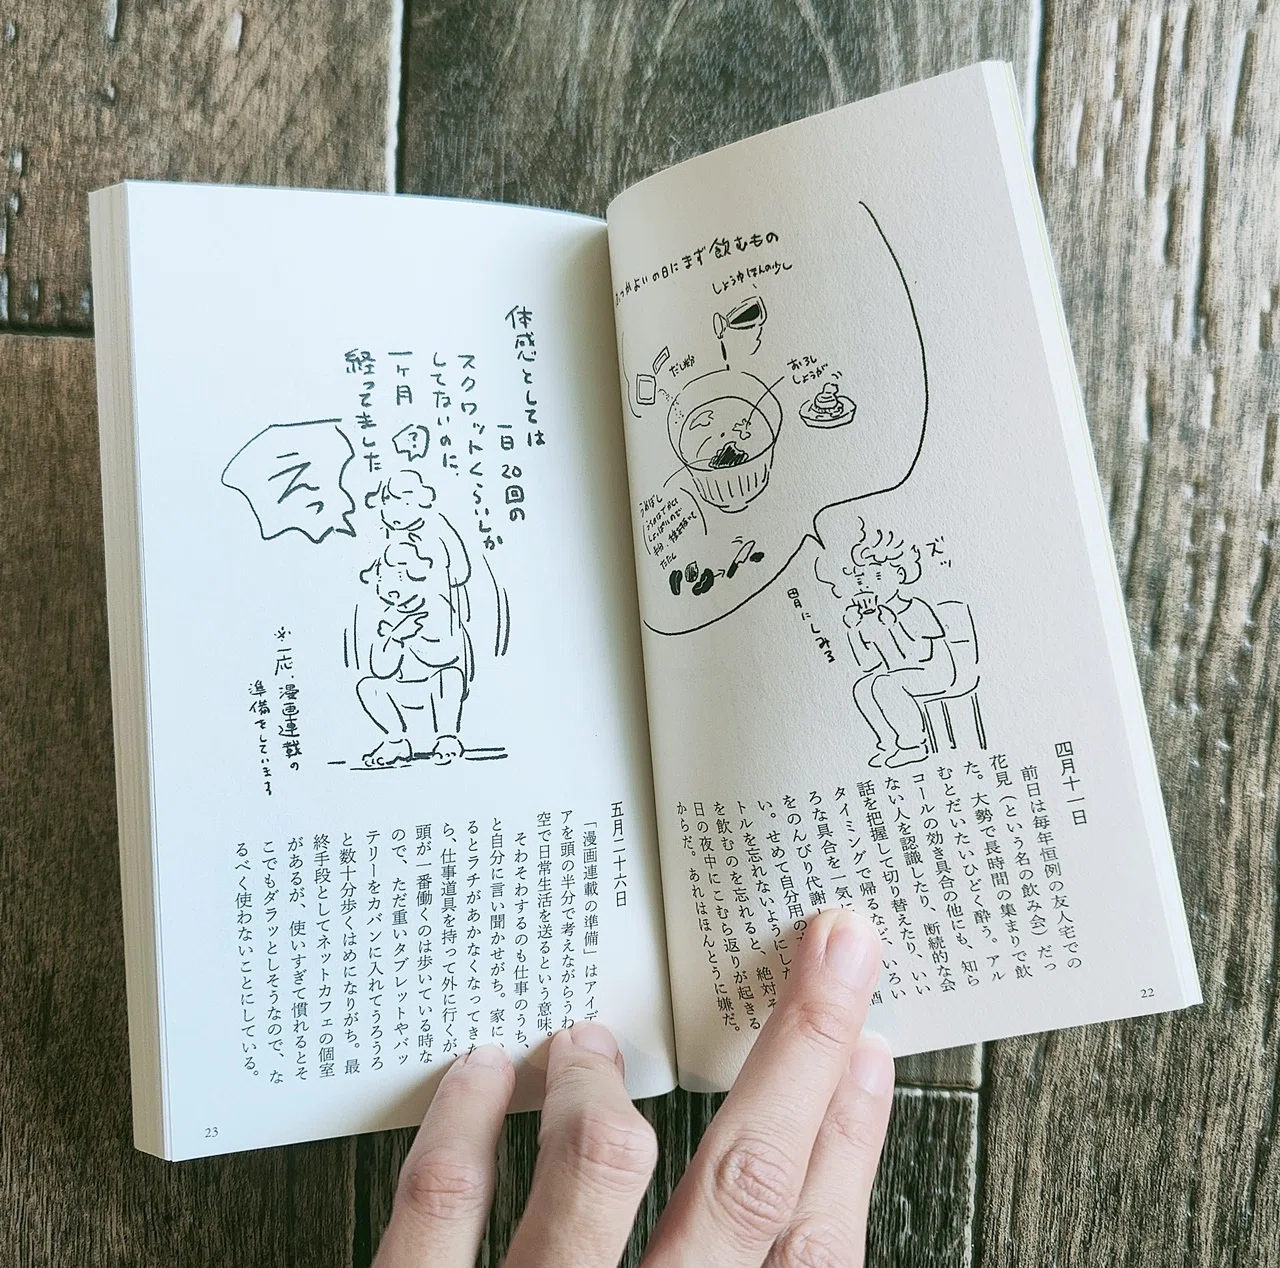 ふつかよいの日にまず飲むもの
しょうゆほんの少し
だし粉
おろし
しょうが
うめぼし
たたく
ズッ
胃にしみる
四月十一日
前日は毎年恒例の友人宅での
花見（という名の飲み会）だっ
た。大勢で長時間の集まりで飲
むとだいたいひどく酔う。アル
コールの効き具合の他にも、知ら
ない人を認識したり、断続的な会
話を把握して切り替えたり、いい
タイミングで帰るなど、いろい
ろな具合を一気に
酒
をのんびり代謝し
い。せめて自分用の
トルを忘れないようにした
を飲むのを忘れると、絶対そ
日の夜中にこむら返りが起きる
からだ。あれはほんとうに嫌だ。
22
体感としては
一日20回の
スクワットくらいしか
してないのに、
一ヶ月
経ってました
?
えっ
※一応、漫画連載の
準備をしています
五月二十六日
「漫画連載の準備」はアイデ
アを頭の半分で考えながらうわ
空で日常生活を送るという意味。
そわそわするのも仕事のうち、
と自分に言い聞かせがち。家に
るとラチがあかなくなってきた
ら、仕事道具を持って外に行くが、
頭が一番働くのは歩いている時な
ので、ただ重いタブレットやバッ
テリーをカバンに入れてうろうろ
と数十分歩くはめになりがち。最
終手段としてネットカフェの個室
があるが、使いすぎて慣れるとそ
こでもダラッとしそうなので、な
るべく使わないことにしている。
23